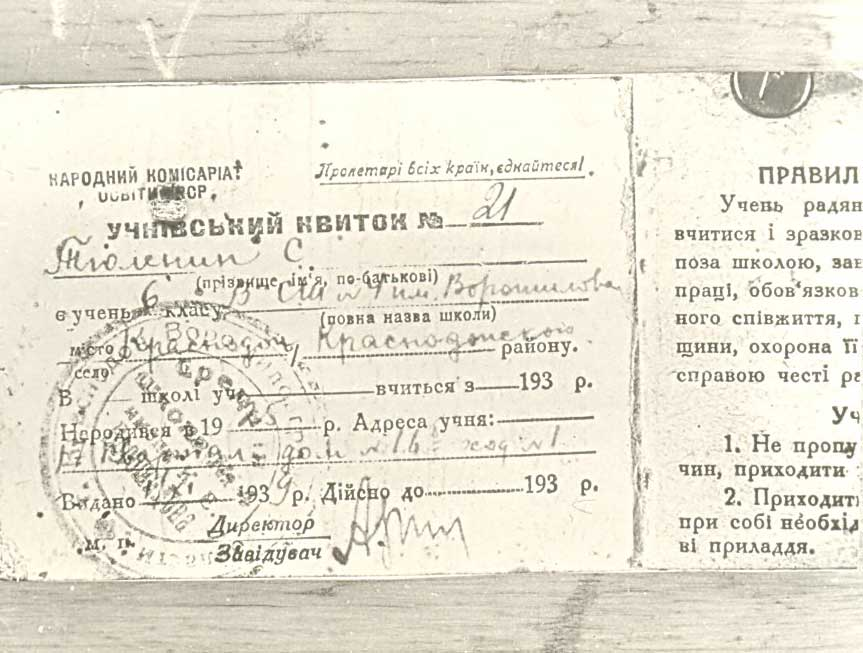 НАРОДНИЙ КОМІСАРІАТ
ОСВІТИ УСРР
Пролетарі всіх країн, єднайтеся!
УЧНІВСЬКИЙ КВИТОК № 21
Тюленин С.
(прізвище, ім'я, по-батькові)
є учень 6 класу В СШ №1 им. Ворошилова
(повна назва школи)
місто Краснодон, Краснодонского району.
село
В школі уч вчиться з 193 р.
Народився в 19 р. Адреса учня:
дом № 16 ход №1
Видано 193 9 р. Дійсно до 193 р.
Директор
Завідувач
м. п.
ПРАВИЛ
Учень радян
вчитися і зразков
поза школою, зав
праці, обов'язков
ного співжиття, п
щини, охорона її
справою честі ра
Уч
1. Не пропу
чин, приходити
2. Приходит
при собі необхід
ві приладдя.